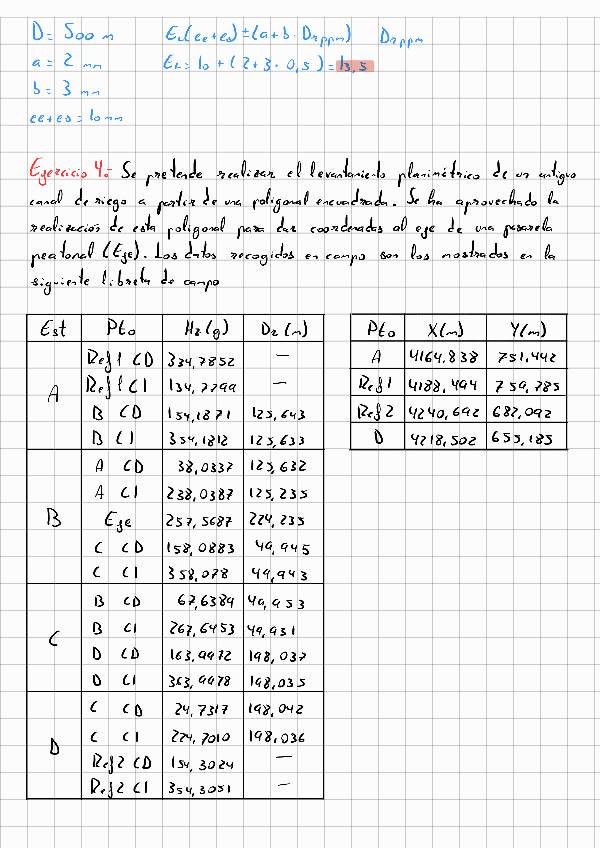 D = 500 m    EL(ee+es) ± (a+b · Dr ppm)    Dr ppm
a = 2 mm    EL = 10 + (2+3 · 0,5) = 13,5
b = 3 mm
ee+es = 10 mm
Ejercicio 4.- Se pretende realizar el levantamiento planimétrico de un antiguo
canal de riego a partir de una poligonal encuadrada. Se ha aprovechado la
realización de esta poligonal para dar coordenadas al eje de una pasarela
peatonal (Eje). Los datos recogidos en campo son los mostrados en la
siguiente libreta de campo
Est Pto Hz(g) Dz(m)
A
Ref1 CD 334,7852 —
Ref1 CI 134,7799 —
B CD 154,1871 125,643
B CI 354,1812 125,633
B
A CD 38,0337 125,632
A CI 238,0387 125,235
Eje 257,5687 224,235
C CD 158,0883 49,945
C CI 358,078 49,943
C
B CD 67,6384 49,953
B CI 267,6453 49,931
D CD 163,9972 198,037
D CI 363,9978 198,035
D
C CD 24,7317 198,042
C CI 224,7010 198,036
Ref2 CD 154,3024 —
Ref2 CI 354,3051 —
Pto X(m) Y(m)
A 4164,838 751,442
Ref1 4188,494 759,785
Ref2 4240,692 682,092
D 4218,502 655,185